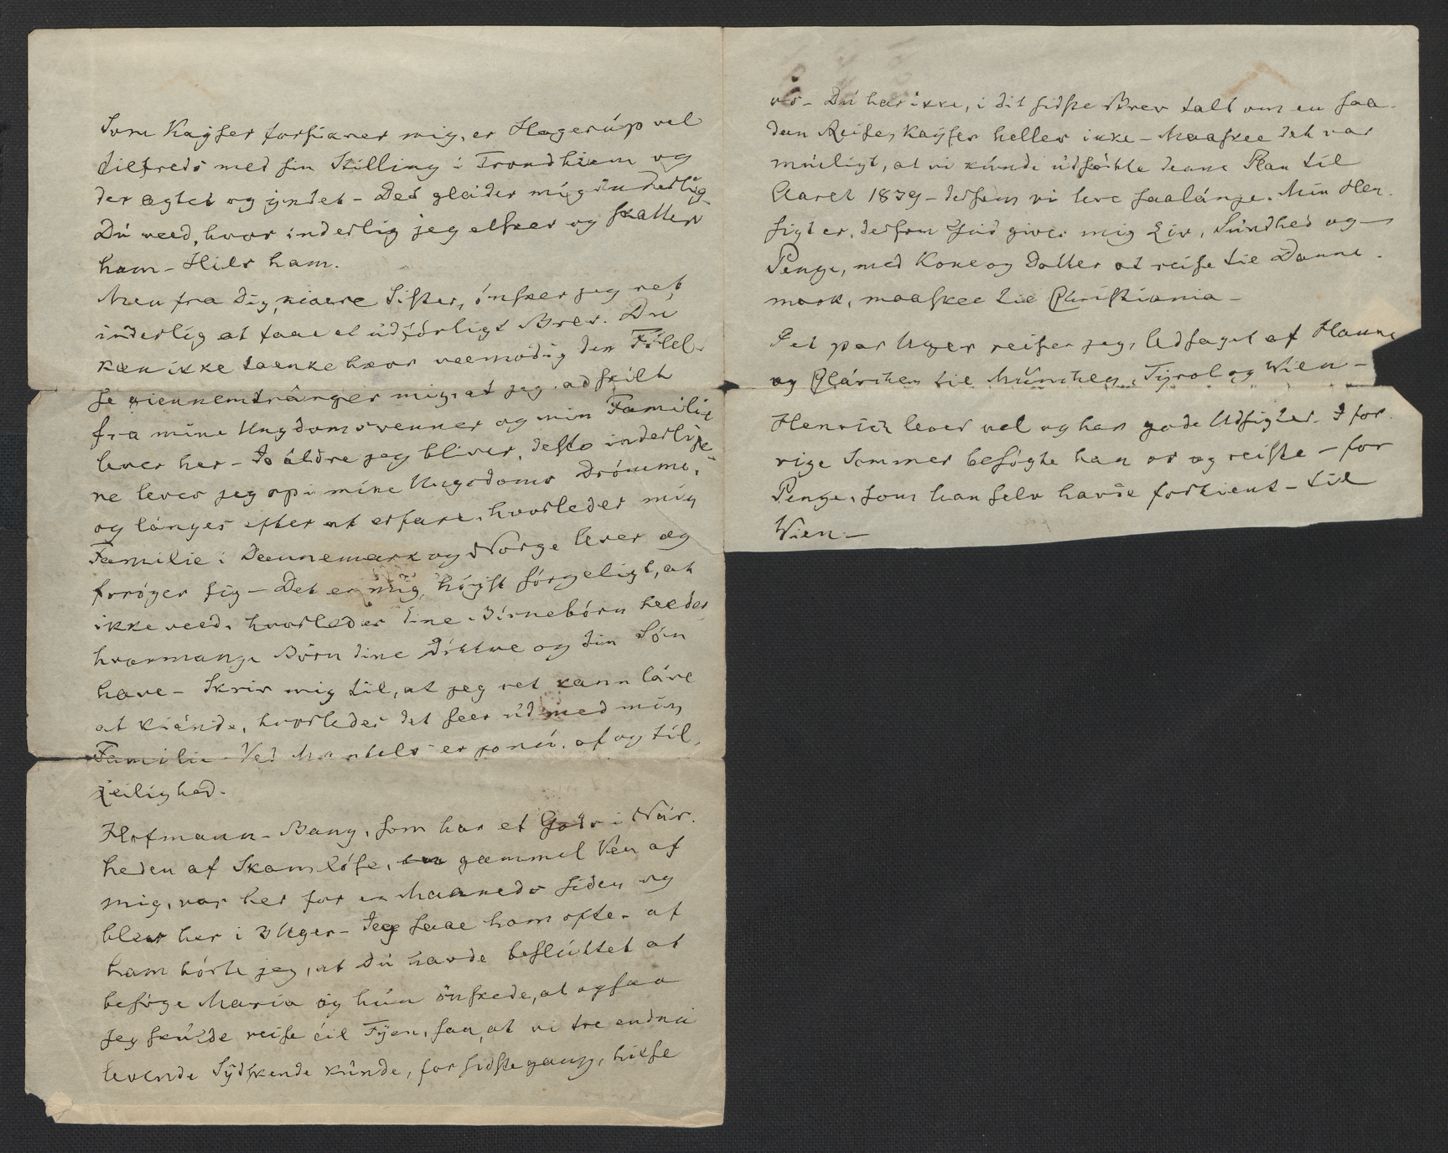 Som Kaÿser forsikrer mig, er Hagerúp vel
tilfreds med sin Stilling i Trondhiem og
der agtet og ÿndet – Det gláder mig inderlig
Dú veed, hvor inderlig jeg elsker og skatter
ham – Hils ham.
Men fra dig, kiaere Sister, ónsker jeg ret
inderlig at faae et údfórligt Brev. Du
kan ikke taenke hvor veemodig den Fólel-
se giennemtránger mig, at jeg adskilt
fra mine Ungdomsvenner og min Familie
lever her – Jo áldre jeg bliver, desto inderlige-
re lever jeg op i mine Ungdoms Drómme,
og lánges efter at erfare, hvorledes min
Familie i Dannemark og Norge lever og
foróger sig – Det er mig hóist sórgeligt, at
ikke veed, hvorledes Ene Bórnebórn heeder
hvormange Bórn dine Dóttre og din Són
have – Skriv mig til, at jeg ret kann láre
at kiánde, hvorledes det seer úd med min
Familie – Ved Martels er jo nú, af og til,
Leilighed.
Hofmann-Bang, som har et Gods i Nár-
heden af Skamlóse, en gammel Ven af
mig, var her for en Maaneds siden og
blev her i 3 Uger – Jeg saae ham ofte – af
ham hórte jeg, at Dú havde beslúttet at
besóge Maria og hún ónskede, at ogsaa
jeg skúlde reise til Fÿen, saa, at vi tre endnú
levende Sÿdskende kúnde, for sidste gang, hilse
os – Dú har ikke, i dit sidste Brev talt om en saa-
dan Reise, Kaÿser heller ikke – Maaskee det var
múeligt, at vi kúnde údsátte denne Plan til
Aaret 1839 – dersom vi leve saalánge. Min Hen-
sigt er, dersom Gúd giver mig Liv, Súndhed og
Penge, med Kone og Datter at reise til Danne-
mark, maaskee til Christiania –
I et par Uger reiser jeg, ledsaget af Hanne
og Clárchen til Múnchen, Tÿrol og Wien –
Henrich lever vel og har gode Udsigter. I for-
rige Sommer besógte han os og reiste – for
Penge, som han selv havde fortient – til
Wien –